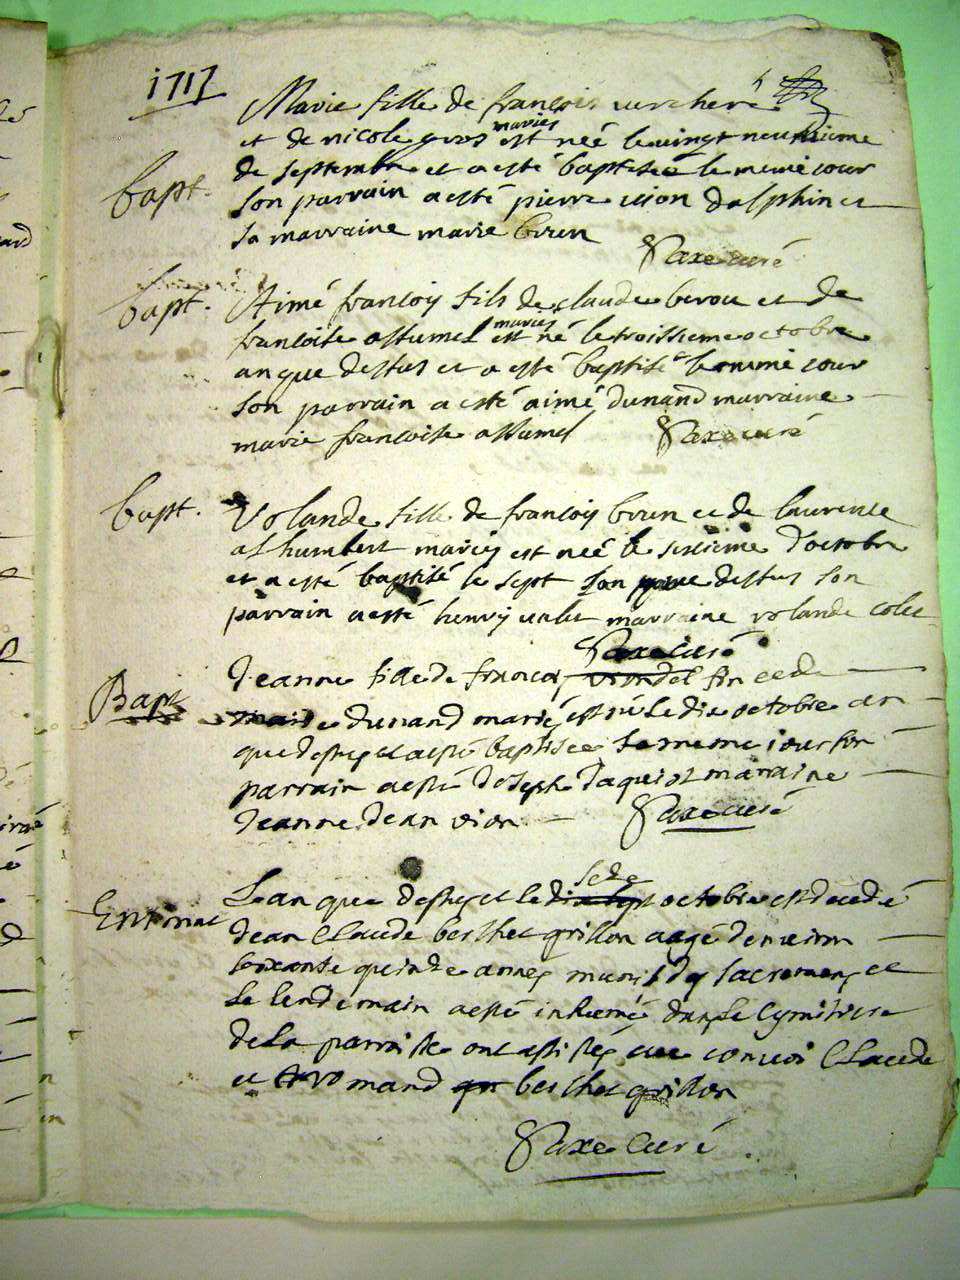 1717
Marie fille de françois vercherè
et de nicole gros mariés est néé le vingt neufvieme
bapt. de septembre et a esté baptiséé le meme iour
son parrain a esté pierre vion dalphin et
sa marraine marie brun
Saxe curé
bapt. Aimé françoiy fils de claude berou et de
françoise assumel mariés est né le troisieme octobre
an que dessus et a esté baptisé le meme iour
son parrain a esté aimé dunand marraine
marie françoise assumel Saxe curé
bapt. volande fille de françoiy brun et de laurence
alhumbert mariéy est néé le sixieme d'octobre
et a esté baptisé le sept dessus son
parrain a esté henry valet marraine volande colet
Saxe curé
Bapt Jeanne fille de françoy vion dal fin et de
marie dunand mariés est né le dix octobre an
que dessus et a esté baptisée le meme iour son
parrain a esté Joseph Jaquiot marraine
Jeanne Jean vion Saxe curé
Enterrat L an que dessus et le octobre est decedé
Jean Claude berthet grillon aagé d'environ
soixante quinde annes munis des sacremens et
le lendemain a esté inhumé dans le Cymitiere
de la parroisse ont assistés au convoi Claude
et romand berthet grillon
Saxe Curé